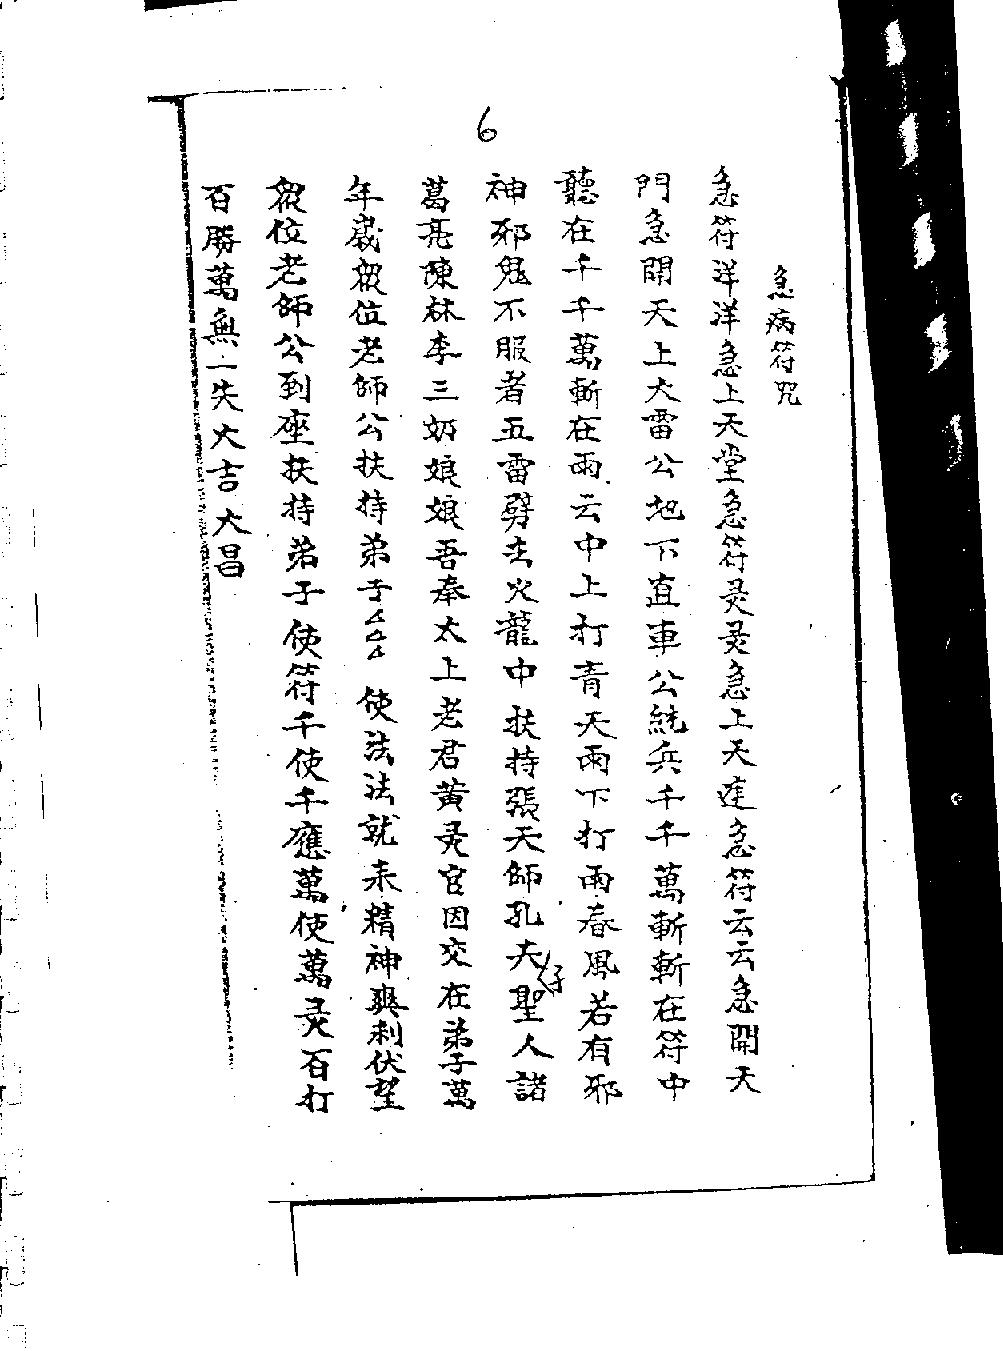 6
急病符咒
急符洋洋急上天堂急符灵灵急上天達急符云云急開天
門急開天上大雷公地下直車公統兵千千萬斬斬在符中
聽在千千萬斬在雨云中上打青天雨下打雨春風若有邪
神邪鬼不服者五雷劈去火龍中扶持張天師孔夫仔聖人諸
葛亮陳林李三奶娘娘吾奉太上老君黃灵官因交在弟子萬
年歲眾位老師公扶持弟子厶厶厶 使法法就来精神爽利伏望
眾位老師公到座扶持弟子使符千使千應萬使萬灵百打
百勝萬無一失大吉大昌